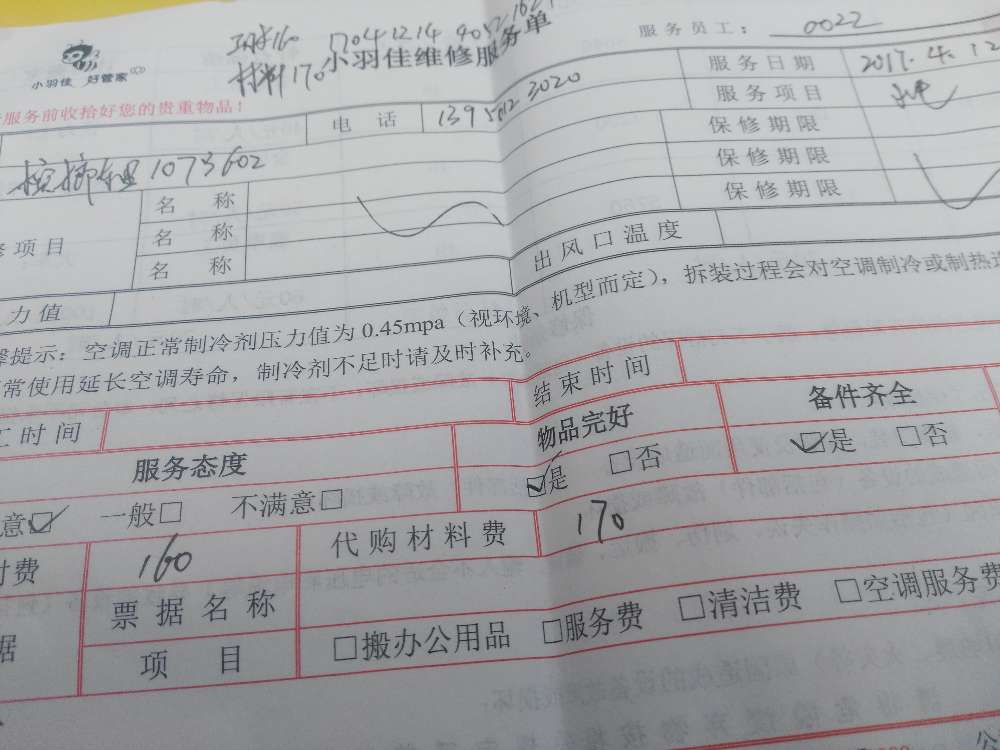 工时160 1704121490121621
材料170
小羽佳维修服务单
服务员工: 0022
小羽佳 好管家
服务日期 2017.4.12
服务前收拾好您的贵重物品!
电 话
服务项目
保修期限
1073602
保修期限
名 称
保修期限
修项目
名 称
名 称
出风口温度
力值
提示:空调正常制冷剂压力值为0.45mpa(视环境、机型而定),拆装过程会对空调制冷或制热造
常使用延长空调寿命,制冷剂不足时请及时补充。
工时间
结束时间
服务态度
物品完好
备件齐全
意☑ 一般□ 不满意□
☑是 □否
☑是 □否
付费
160
代购材料费
170
据
票据名称
项 目
□搬办公用品 □服务费 □清洁费 □空调服务费